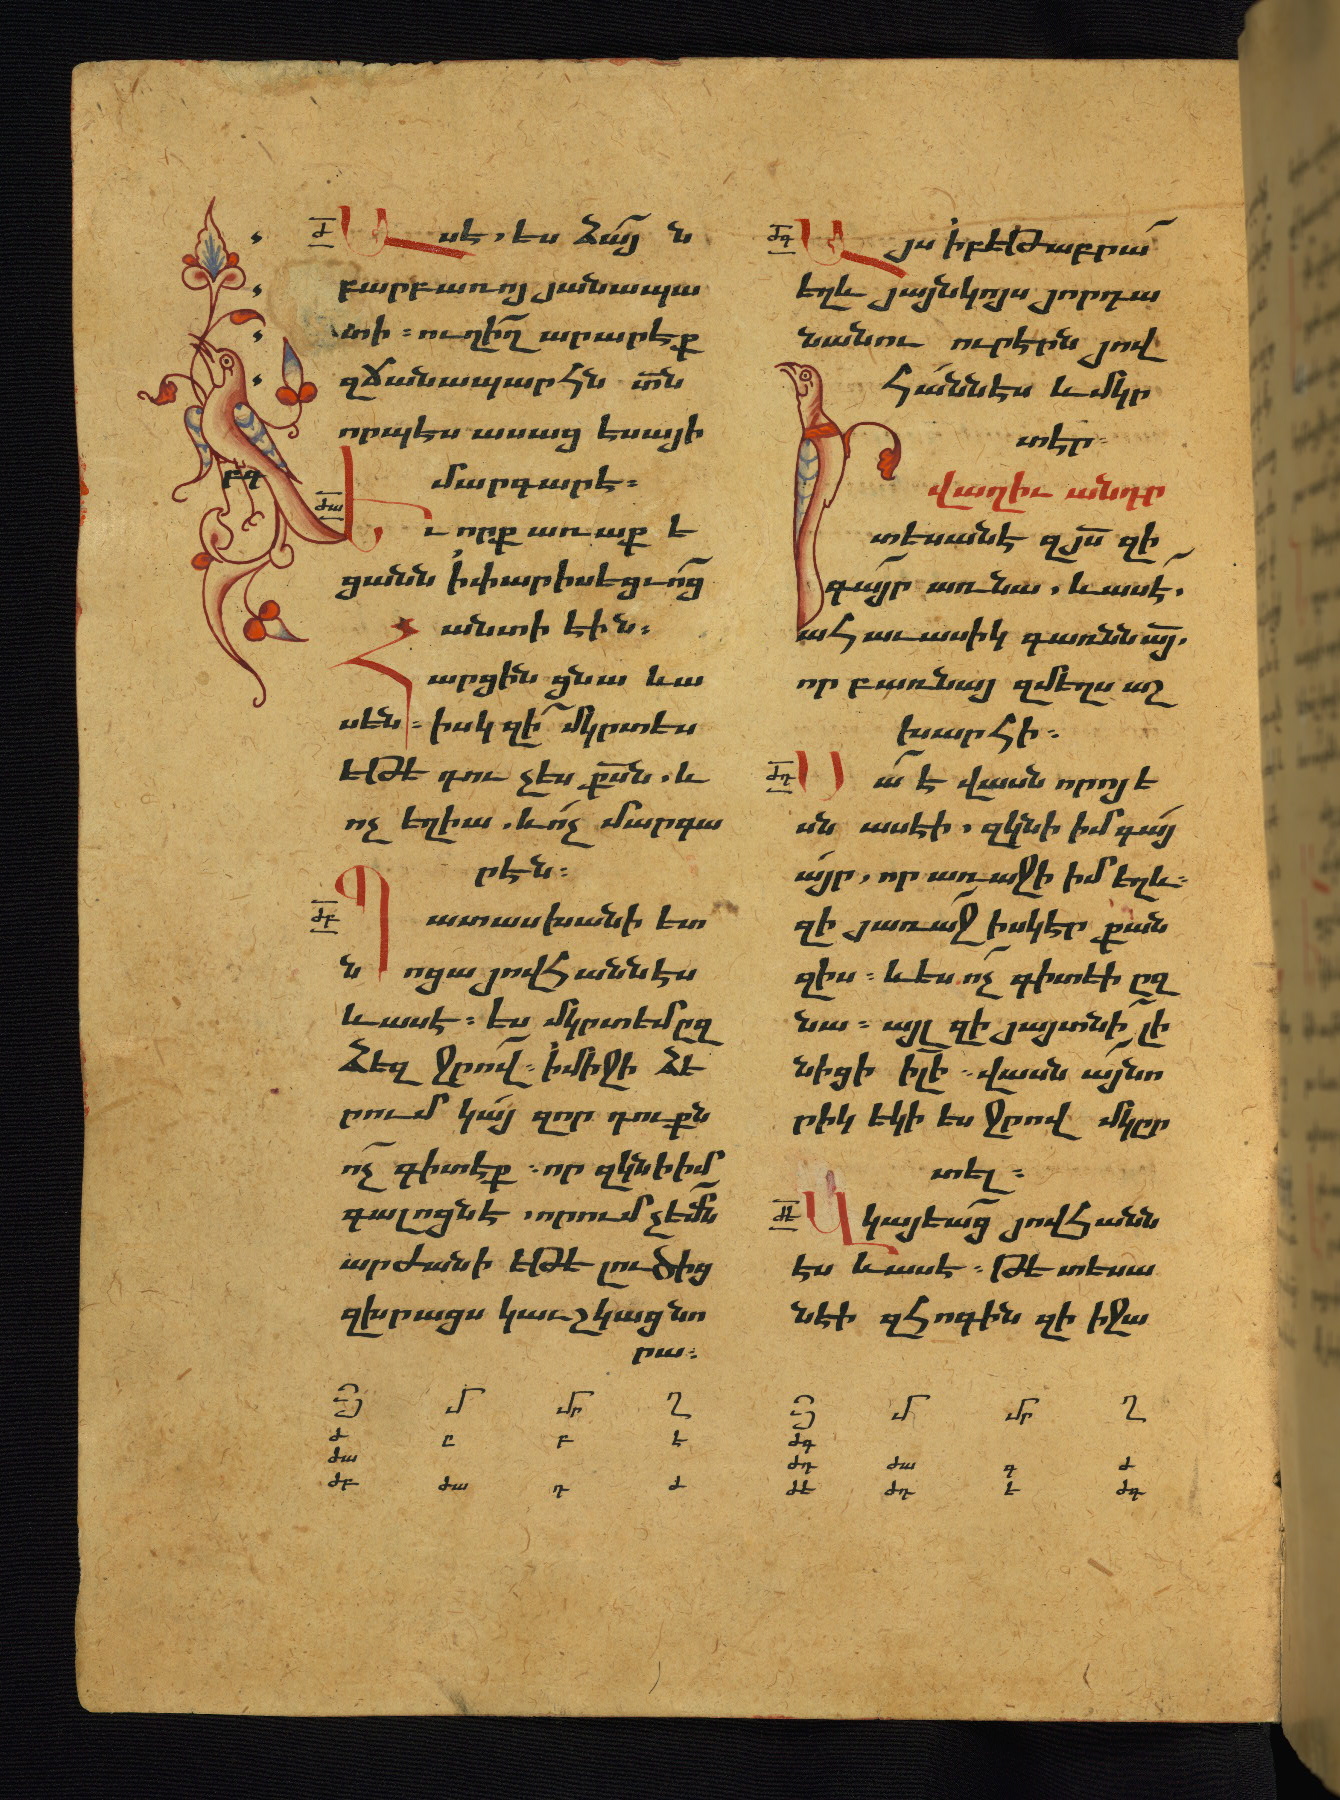 Ասէ, ես ձայն
բարբառոյ յանապա
տի։ ուղիղ արարէք
զճանապարհն տն
որպէս ասաց եսայի
մարգարէ։
Եւ որք առաք ե
ցանն ի փարիսեցւոց
անտի էին։
Հարցին ցնա և ա
սեն։ իսկ զի մկրտես
եթէ դու չես քսն. և
ոչ եղիա. և ոչ մարգա
րէն։
Պատասխանի ետ
նոցա յովհաննէս
և ասէ։ ես մկրտեմ ըզ
ձեզ ջրով։ ի միջի ձե
րում կայ զոր դուքն
ոչ գիտէք։ որ զկնի իմ
գալոցն է, որում չեմն
արժանի եթէ լուծից
զխրացս կաւշկացնո
րա։
Այս ի բեթաբրա
եղև յայնկոյս յորդա
նանու ուր էրն յով
հաննէս և մկր
տէր։
վաղիւ անդր
տեսանէ զյս զի
գայր առ նա, և ասէ,
ահաւասիկ գառնն այ,
որ բառնայ զմեղս աշ
խարհի։
Սա է վասն որոյ ե
սն ասէի, զկնի իմ գայ
այր, որ առաջի իմ եղև։
զի յառաջ իսկ էր քան
զիս։ և ես ոչ գիտէի ըզ
նա։ այլ զի յայտնի լի
նիցի իլի։ վասն այնո
րիկ եկի ես ջրով մկըր
տել։
Վկայեաց յովհանն
էս և ասէ։ թէ տեսա
նէի զհոգին զի իջա
մ մր ղ
ժ ը բ է
ժա
ժբ ժա դ ժ
մ մր ղ
ժգ
ժդ ժա գ ժ
ժե ժդ ե ժգ